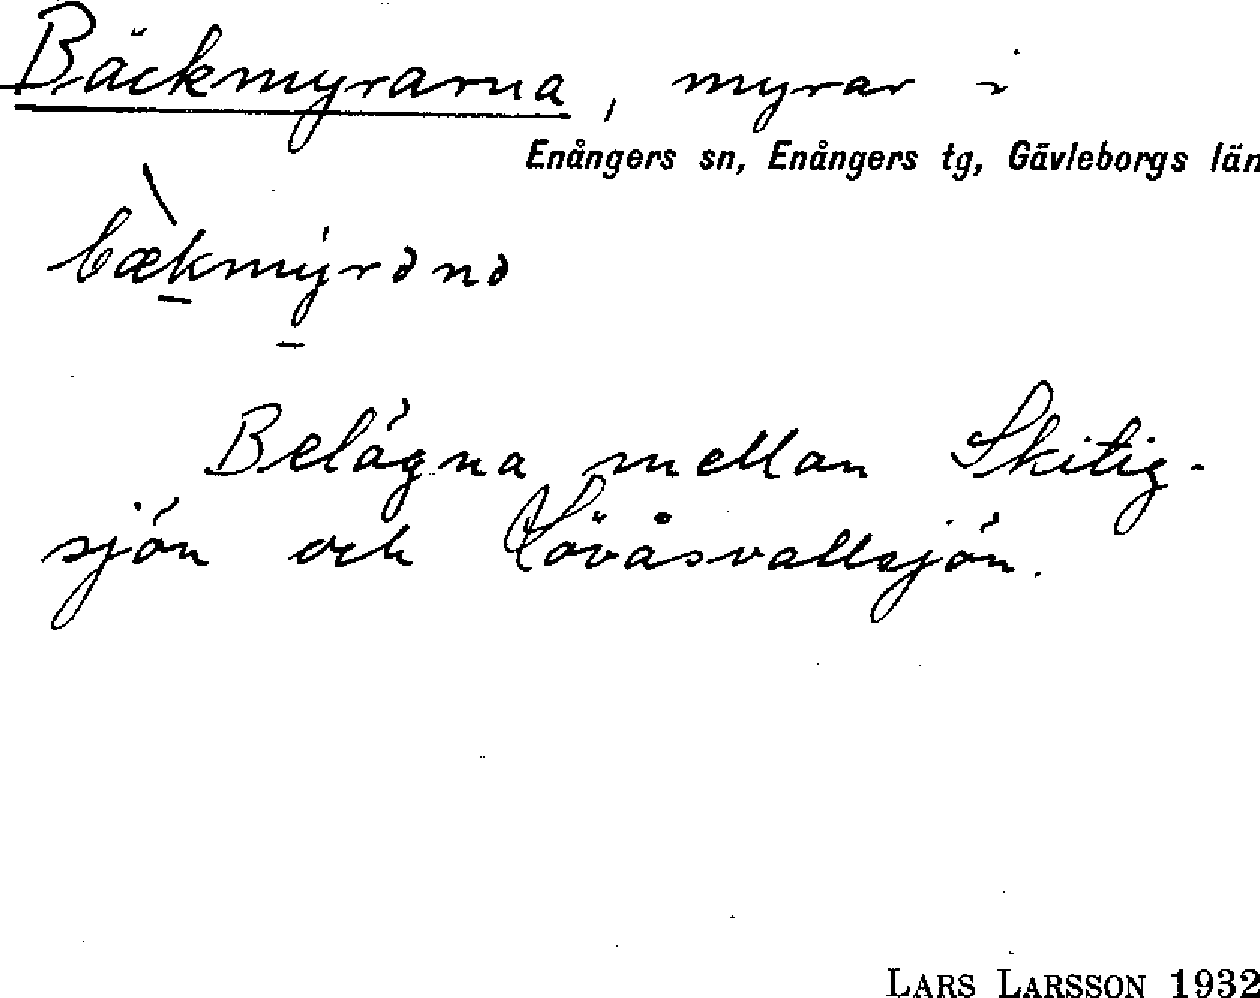 Bäckmyrarna, myrar i
Enångers sn, Enångers tg, Gävleborgs län
bækmyrənə
Belägna mellan Skitig-
sjön och Lövåsvallsjön.
LARS LARSSON 1932